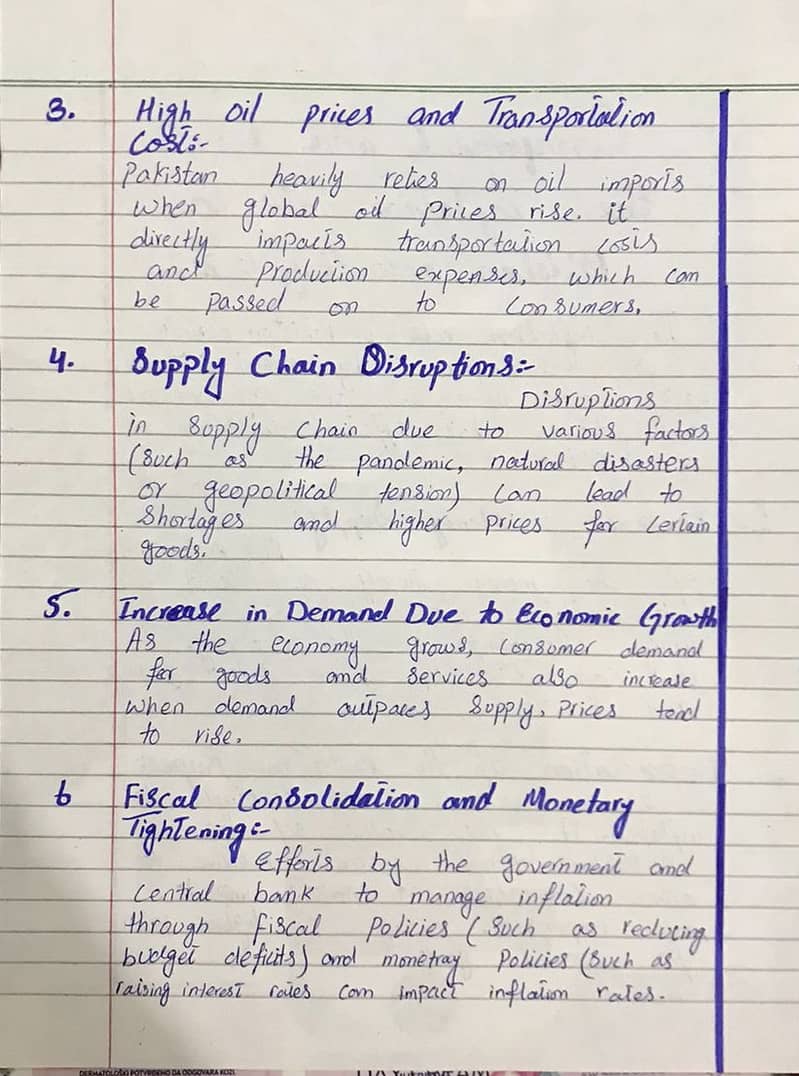 3. High oil prices and Transportation
Cost:-
Pakistan heavily relies on oil imports
when global oil prices rise. it
directly impacts transportation costs
and Production expenses, which can
be passed on to Consumers.
4. Supply Chain Disruptions:-
Disruptions
in Supply Chain due to various factors
(Such as the pandemic, natural disasters
or geopolitical tension) can lead to
Shortages and higher prices for certain
goods.
5. Increase in Demand Due to Economic Growth
As the economy grows, Consumer demand
for goods and Services also increase
when demand outpaces Supply, Prices tend
to rise.
6 Fiscal Consolidation and Monetary
Tightening:-
Efforts by the government and
Central bank to manage inflation
through fiscal Policies (Such as reducing
budget deficits) and monetray Policies (Such as
raising interest rates can impact inflation rates.
DERMATOLOŠKI POTVRĐENO DA ODGOVARA KOŽI